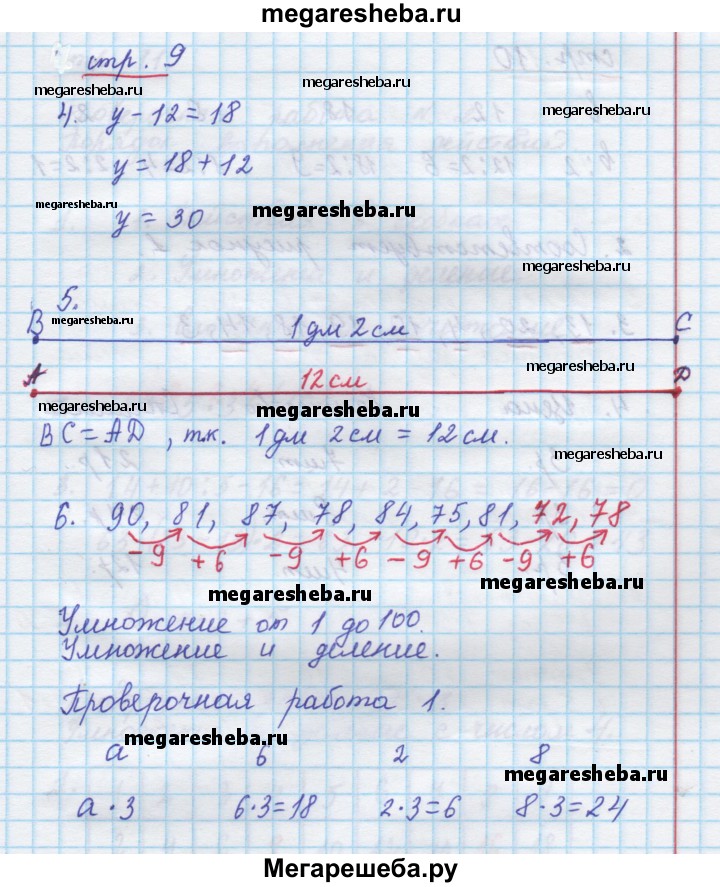 megaresheba.ru
стр. 9
megaresheba.ru
megaresheba.ru
4. y - 12 = 18
megaresheba.ru
y = 18 + 12
megaresheba.ru
y = 30
megaresheba.ru
megaresheba.ru
5.
B
megaresheba.ru
1 дм 2 см
C
megaresheba.ru
A
12 см
D
megaresheba.ru
megaresheba.ru
megaresheba.ru
BC = AD, т.к. 1 дм 2 см = 12 см.
megaresheba.ru
6. 90, 81, 87, 78, 84, 75, 81, 72, 78
-9 +6 -9 +6 -9 +6 -9 +6
megaresheba.ru
megaresheba.ru
Умножение от 1 до 100.
Умножение и деление.
megaresheba.ru
Проверочная работа 1.
megaresheba.ru
a 6 2 8
megaresheba.ru
a · 3 6·3=18 2·3=6 8·3=24
Мегарешеба.ру